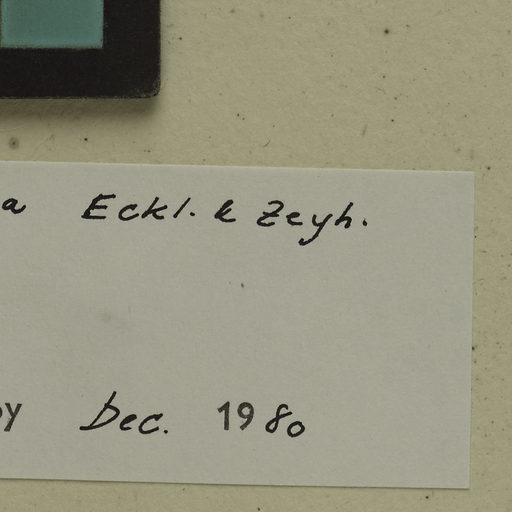 a Eckl. & Zeyh.
y Dec. 1980